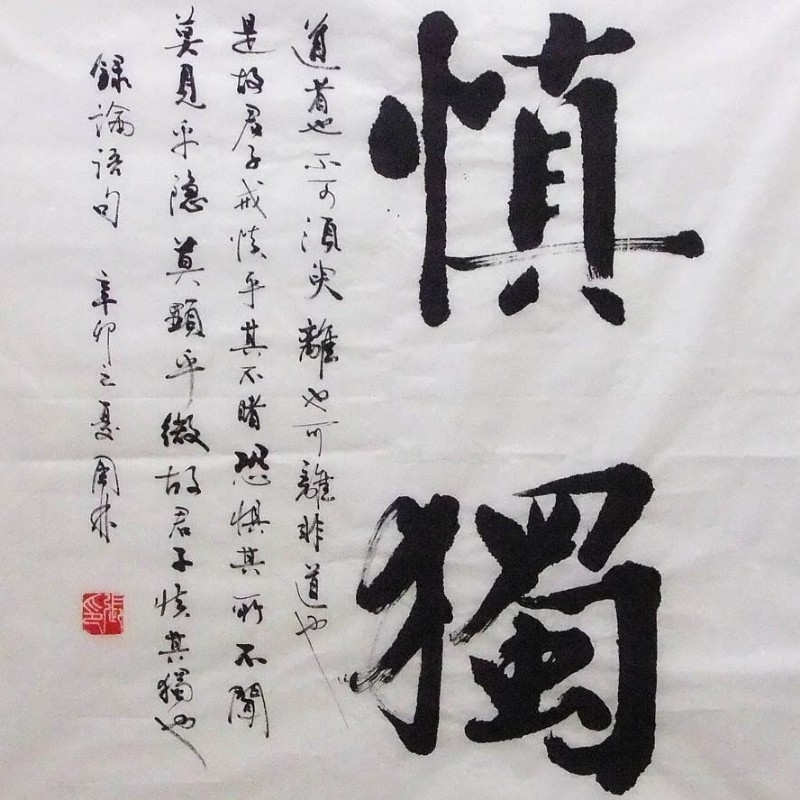 慎獨
道者也不可須臾離也可離非道也
是故君子戒慎乎其不睹恐惧其所不聞
莫見乎隐莫顯乎微故君子慎其獨也
録論語句 辛卯之夏